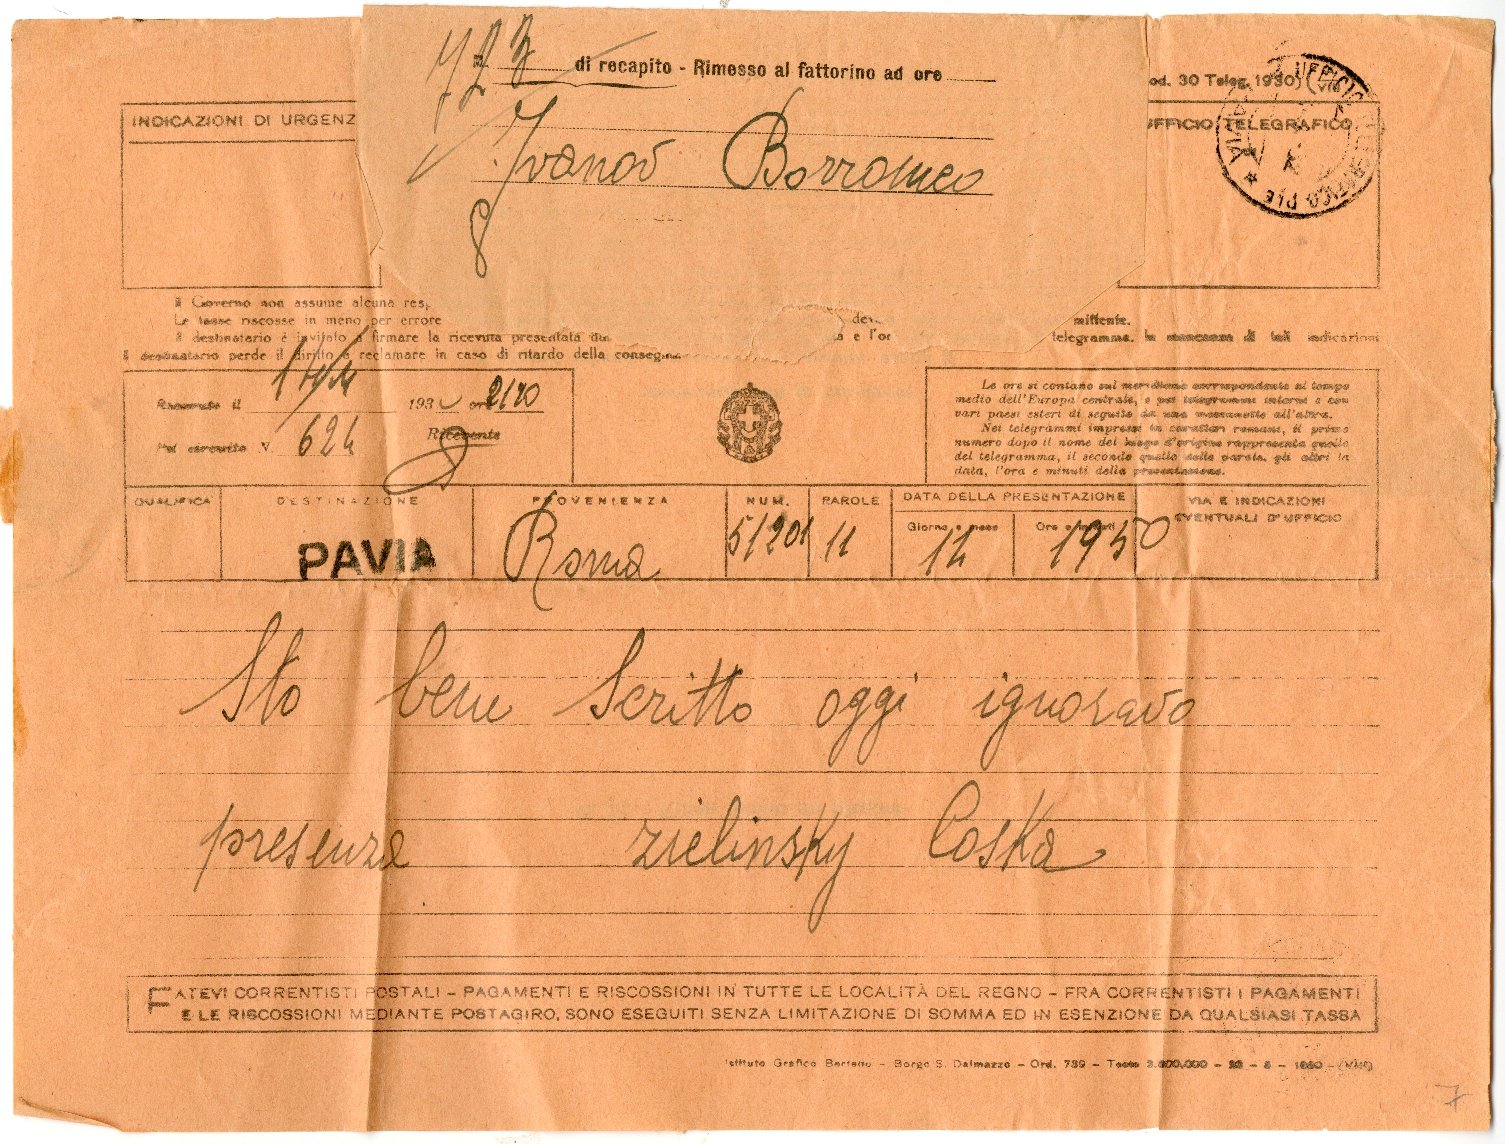 723
di recapito - Rimesso al fattorino ad ore
Mod. 30 Teleg. 1930
Ivanov Borromeo
INDICAZIONI DI URGENZ
UFFICIO TELEGRAFICO
Il Governo non assume alcuna res
Le tasse riscosse in meno per errore
mittente.
Il destinatario è invitato a firmare la ricevuta presentata
e l'or
telegramma. In mancanza di tali indicazioni
il destinatario perde il diritto a reclamare in caso di ritardo della consegna
Ricevuto il 193 ore 2120
Pel circuito N. 624
Ricevente
Le ore si contano sul meridiano corrispondente al tempo
medio dell'Europa centrale, e pei telegrammi interni e con
vari paesi esteri di seguito da una mezzanotte all'altra.
Nei telegrammi impressi in caratteri romani, il primo
numero dopo il nome del luogo d'origine rappresenta quello
del telegramma, il secondo quello delle parole, gli altri la
data, l'ora e minuti della presentazione.
QUALIFICA DESTINAZIONE PROVENIENZA NUM. PAROLE DATA DELLA PRESENTAZIONE VIA E INDICAZIONI
EVENTUALI D'UFFICIO
Giorno e mese Ore e minuti
PAVIA Roma 51201 11 14 1950
Sto bene Scritto oggi ignoravo
presenza zielinsky Coska
FATEVI CORRENTISTI POSTALI - PAGAMENTI E RISCOSSIONI IN TUTTE LE LOCALITÀ DEL REGNO - FRA CORRENTISTI I PAGAMENTI
E LE RISCOSSIONI MEDIANTE POSTAGIRO, SONO ESEGUITI SENZA LIMITAZIONE DI SOMMA ED IN ESENZIONE DA QUALSIASI TASSA
Istituto Grafico Bertello - Borgo S. Dalmazzo - Ord. 739
7